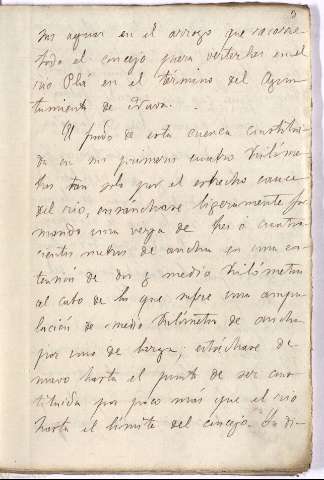 3
sus aguas en el arroyo que recorre
todo el concejo para verterlas en el
rio Plá en el término del Ayun-
tamiento de Nava.
El fondo de esta cuenca constitui-
da en sus primeros cuatro kilóme-
tros tan solo por el estrecho cauce
del rio, ensánchase ligeramente for-
mando una vega de tres ó cuatro-
cientos metros de ancha en una es-
tensión de dos y medio kilómetros
al cabo de lo que sufre una ampu-
lación de medio kilómetro de ancha
por uno de larga; estréchase de
nuevo hasta el punto de ser cons-
tituida por poco más que el rio
hasta el límite del concejo. Su di-